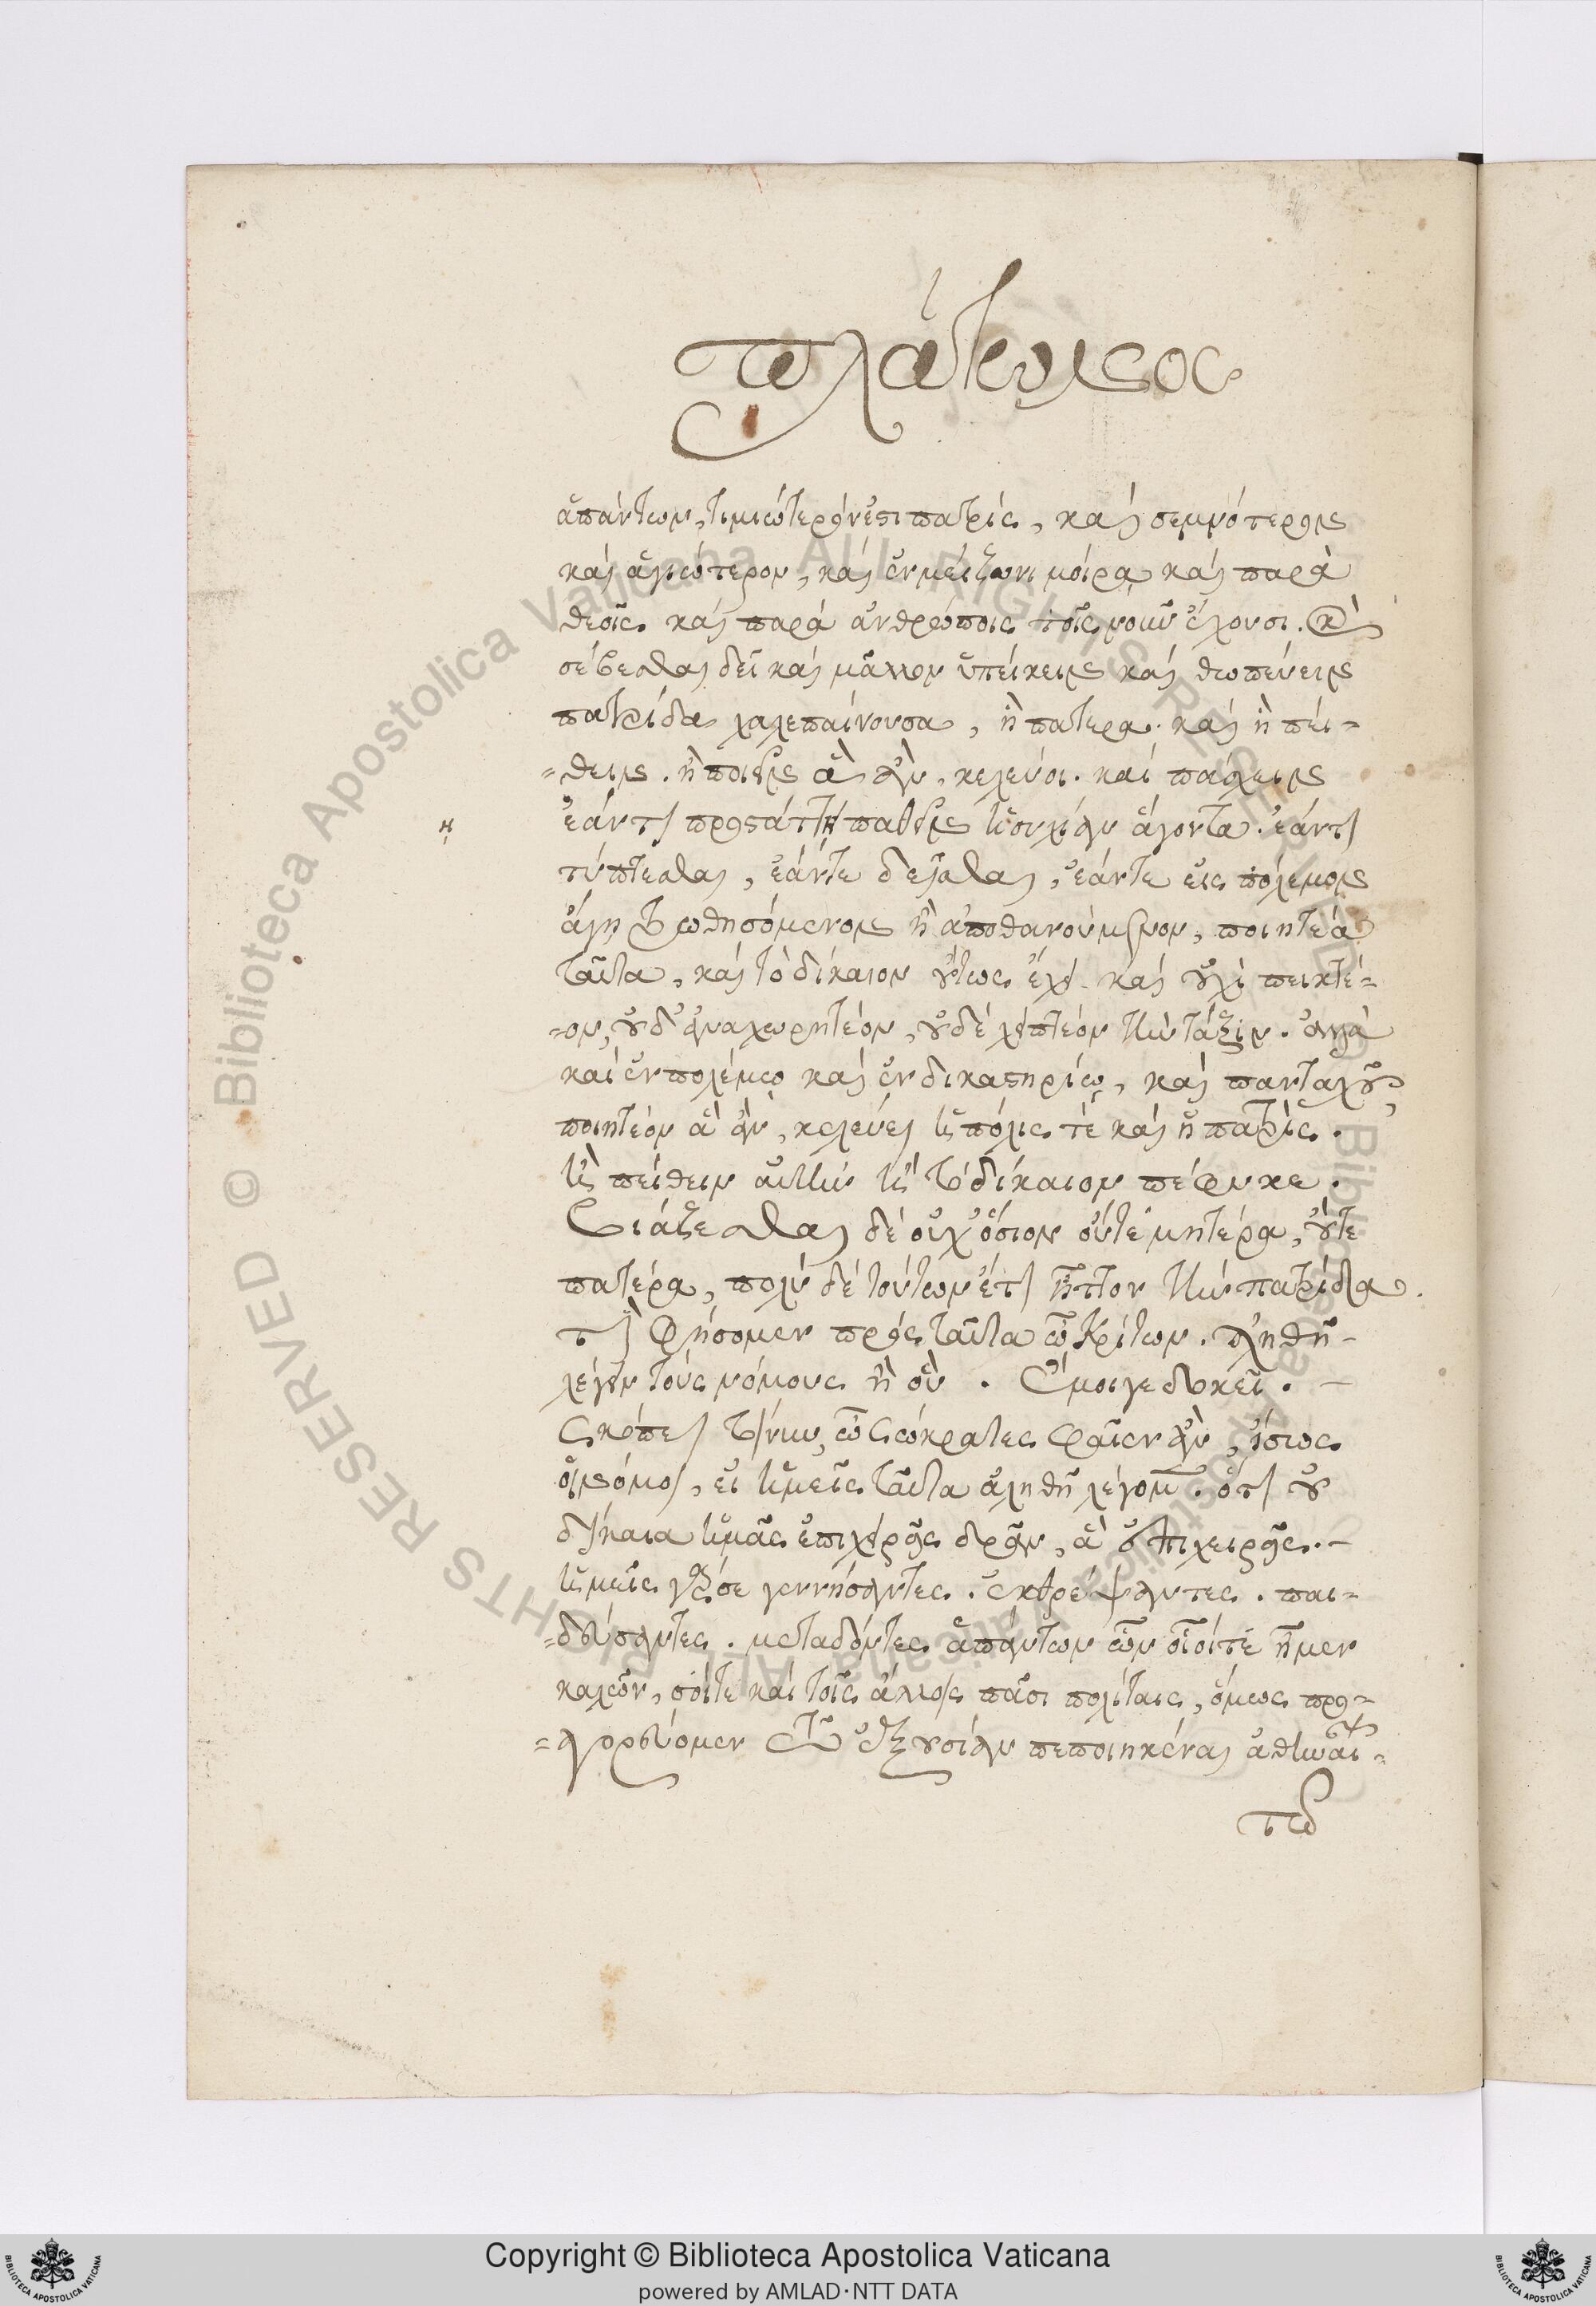 πλάτωνος
ἁπάντων, τιμιώτερόν ἐστι πατρὶς, καὶ σεμνότερον
καὶ ἁγιώτερον, καὶ ἐν μείζωνι μοίρα καὶ παρὰ
θεοῖς καὶ παρὰ ἀνθρώποις τοῖς νοῦν ἔχουσι. καὶ
σέβεσθαι δεῖ καὶ μᾶλλον ὑπείκειν καὶ θωπεύειν
πατρίδα χαλεπαίνουσα, ἢ πατερα. καὶ ἢ πεί-
-θειν. ἢ ποιεῖν ἃ ἂν, κελεύοι. καὶ πάσχειν
η
ἐάν τι προστάττη παθεῖν ἡσυχίαν ἄγοντα. ἐάν τι
τύπτεσθαι, ἐάντε δεῖσθαι, ἐάντε εἰς πόλεμον
ἄγη τρωθησόμενον ἢ ἀποθανούμενον, ποιητέα
ταῦτα, καὶ τὸ δίκαιον οὕτως ἔχει. καὶ οὐχὶ πεικτέ-
-ον, οὐδ' ἀναχωρητέον, οὐδὲ λειπτέον τὴν τάξιν. ἀλλὰ
καὶ ἐν πολέμῳ καὶ ἐν δικαστηρίῳ, καὶ πανταχοῦ
ποιητέον ἃ ἂν, κελεύει ἡ πόλις τὲ καὶ ἡ πατρίς.
ἢ πείθειν αὐτὴν ἢ τὸ δίκαιον πέφυκε.
βιάζεσθαι δὲ οὐχ' ὅσιον οὔτε μητέρα, οὔτε
πατέρα, πολὺ δὲ τούτων ἔτι ἧττον τὴν πατρίδα.
τὶ φήσομεν πρὸς ταῦτα ὦ Κρίτων. ἀληθῆ-
λέγειν τοὺς νόμους ἢ οὔ. Ἔμοιγε δοκεῖ. -
Σκόπει τοίνυν, ὦ Σώκρατες φαῖεν ἂν, ἴσως
οἱ νόμοι, εἰ ἡμεῖς ταῦτα ἀληθῆ λέγομεν. ὅτι οὐ
δίκαια ἡμᾶς ἐπιχειρεῖς δρᾶν, ἃ ἐπιχειρεῖς. -
ἡμεῖς γάρ σε γεννήσαντες. ἐκθρέψαντες. παι-
-δεύσαντες. μεταδόντες ἁπάντων ὧν οἷοίτε ἦμεν
καλῶν, σοίτε καὶ τοῖς ἄλλοις πᾶσι πολίταις, ὅμως προ-
-αγορεύομεν τῷ ἐξουσίαν πεποιηκέναι ἀθηναί-